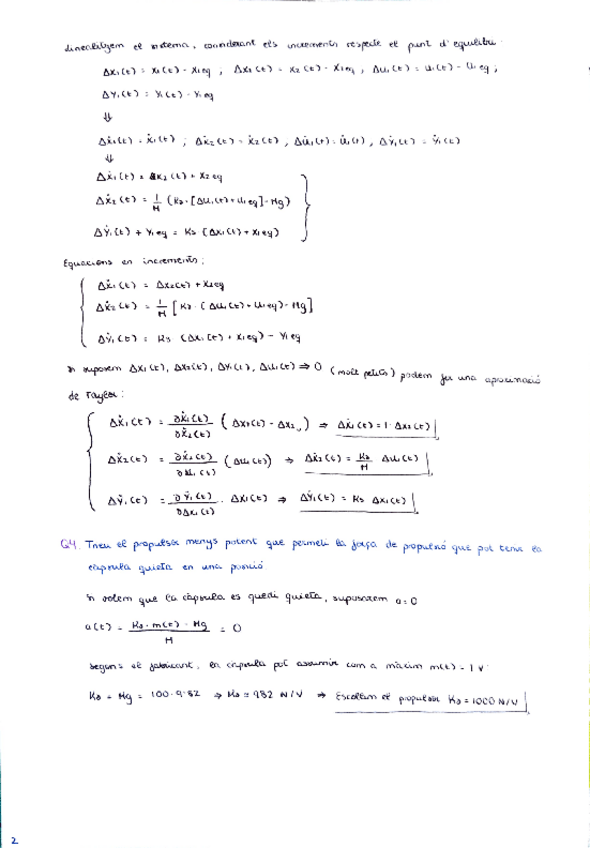 Linealitzem el sistema, considerant els increments respecte el punt d'equilibri:
Δx₁(t) = x₁(t) - x₁eq ; Δx₂(t) = x₂(t) - x₂eq , Δu₁(t) = u₁(t) - u₁eq ;
Δy₁(t) = y₁(t) - y₁eq
⇓
Δẋ₁(t) = ẋ₁(t) ; Δẋ₂(t) = ẋ₂(t) , Δu̇₁(t) = u̇₁(t) , Δẏ₁(t) = ẏ₁(t)
⇓
Δẋ₁(t) = Δx₂(t) + x₂eq
Δẋ₂(t) = 1/M (K₂ · [Δu₁(t) + u₁eq] - Mg)
Δẏ₁(t) + y₁eq = K₃ (Δx₁(t) + x₁eq)
Equacions en increments:
Δẋ₁(t) = Δx₂(t) + x₂eq
Δẋ₂(t) = 1/M [K₂ · (Δu₁(t) + u₁eq) - Mg]
Δẏ₁(t) = K₃ (Δx₁(t) + x₁eq) - y₁eq
Si suposem Δx₁(t), Δx₂(t), Δy₁(t), Δu₁(t) ⇒ 0 (molt petits) podem fer una aproximació
de Taylor:
Δẋ₁(t) = ∂ẋ₁(t)/∂ẋ₂(t) (Δx₂(t) - Δx₂ ) ⇒ Δẋ₁(t) = 1 · Δx₂(t)
Δẋ₂(t) = ∂ẋ₂(t)/∂u₁(t) (Δu₁(t)) ⇒ Δẋ₂(t) = K₂/M Δu₁(t)
Δẏ₁(t) = ∂ẏ₁(t)/∂Δx₁(t) · Δx₁(t) ⇒ Δẏ₁(t) = K₃ Δx₁(t)
Q4. Trieu el propulsor menys potent que permeti la força de propulsió que pot tenir la
càpsula quieta en una posició.
Si volem que la càpsula es quedi quieta, suposarem a=0
a(t) = K₂ · m(t) - Mg / M = 0
Segons el fabricant, la càpsula pot assumir com a màxim m(t) = 1 V.
K₂ = Mg = 100 · 9'82 ⇒ K₂ = 982 N/V ⇒ Escollim el propulsor K₂ = 1000 N/V
2